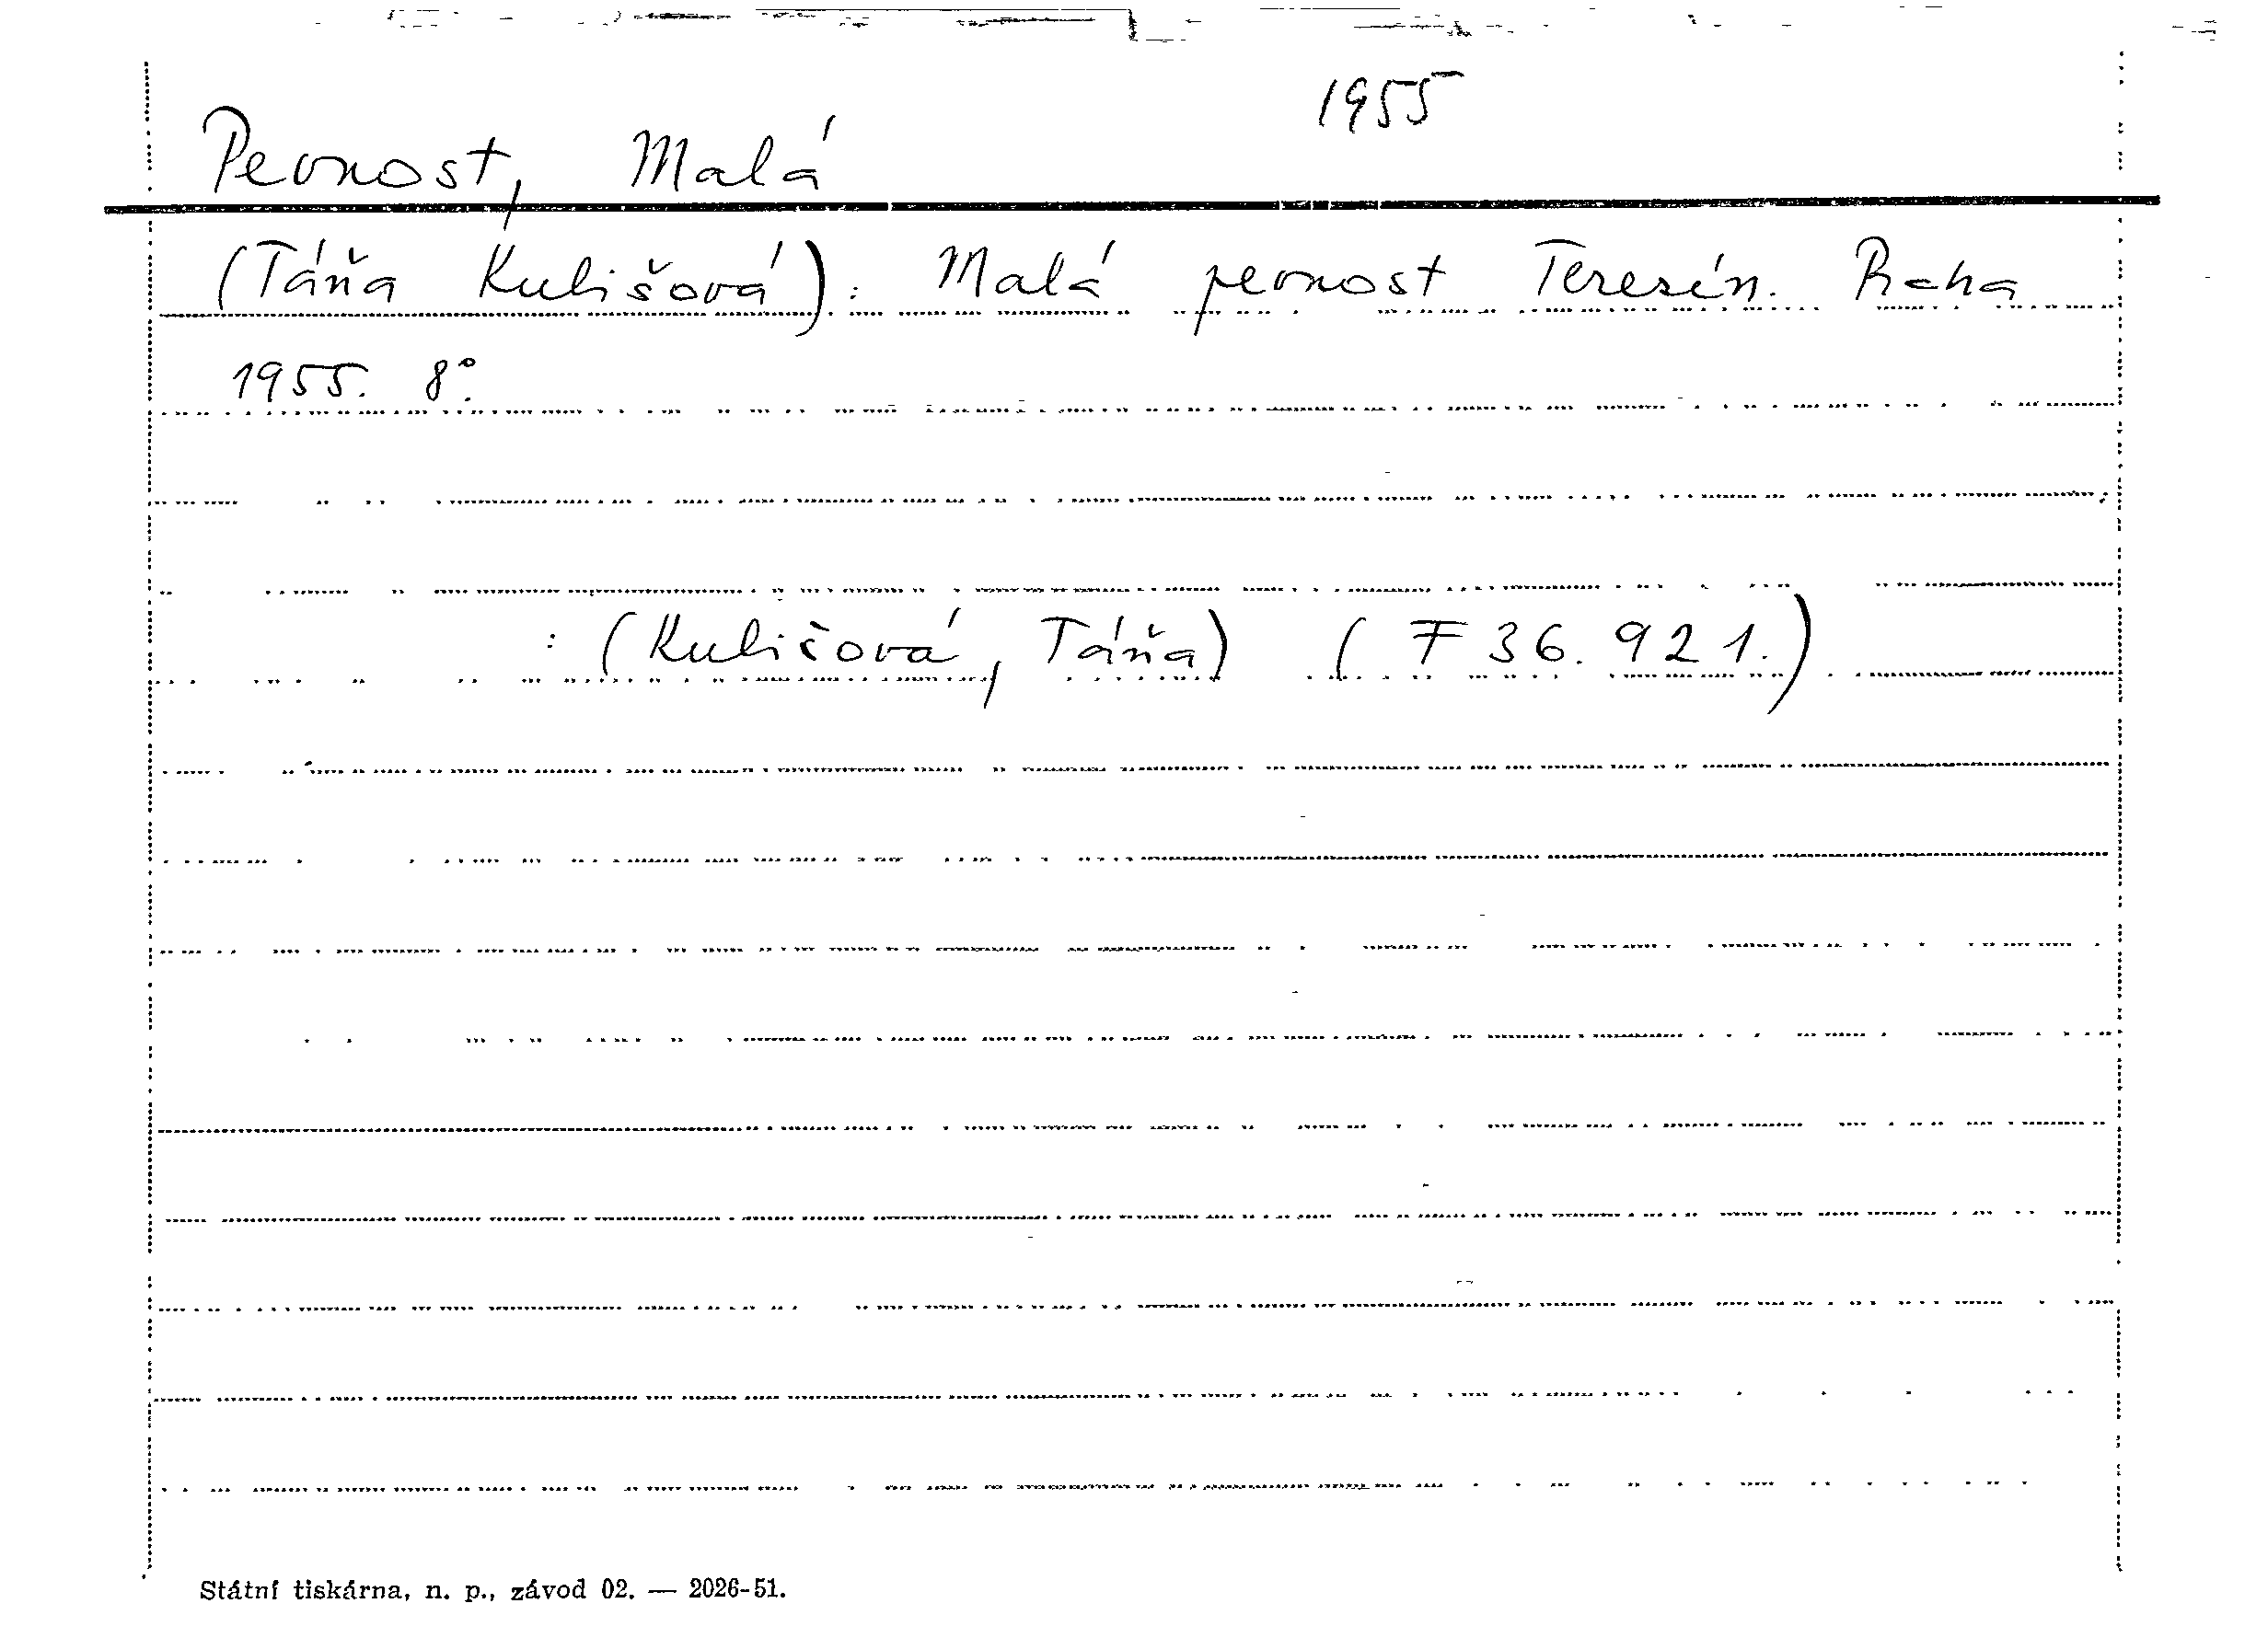 1955
Pevnost, Malá
(Táňa Kulišová): Malá pevnost Terezín. Praha
1955. 8°.
: (Kulišová, Táňa) (F 36.921.)
Státní tiskárna, n. p., závod 02. — 2026-51.